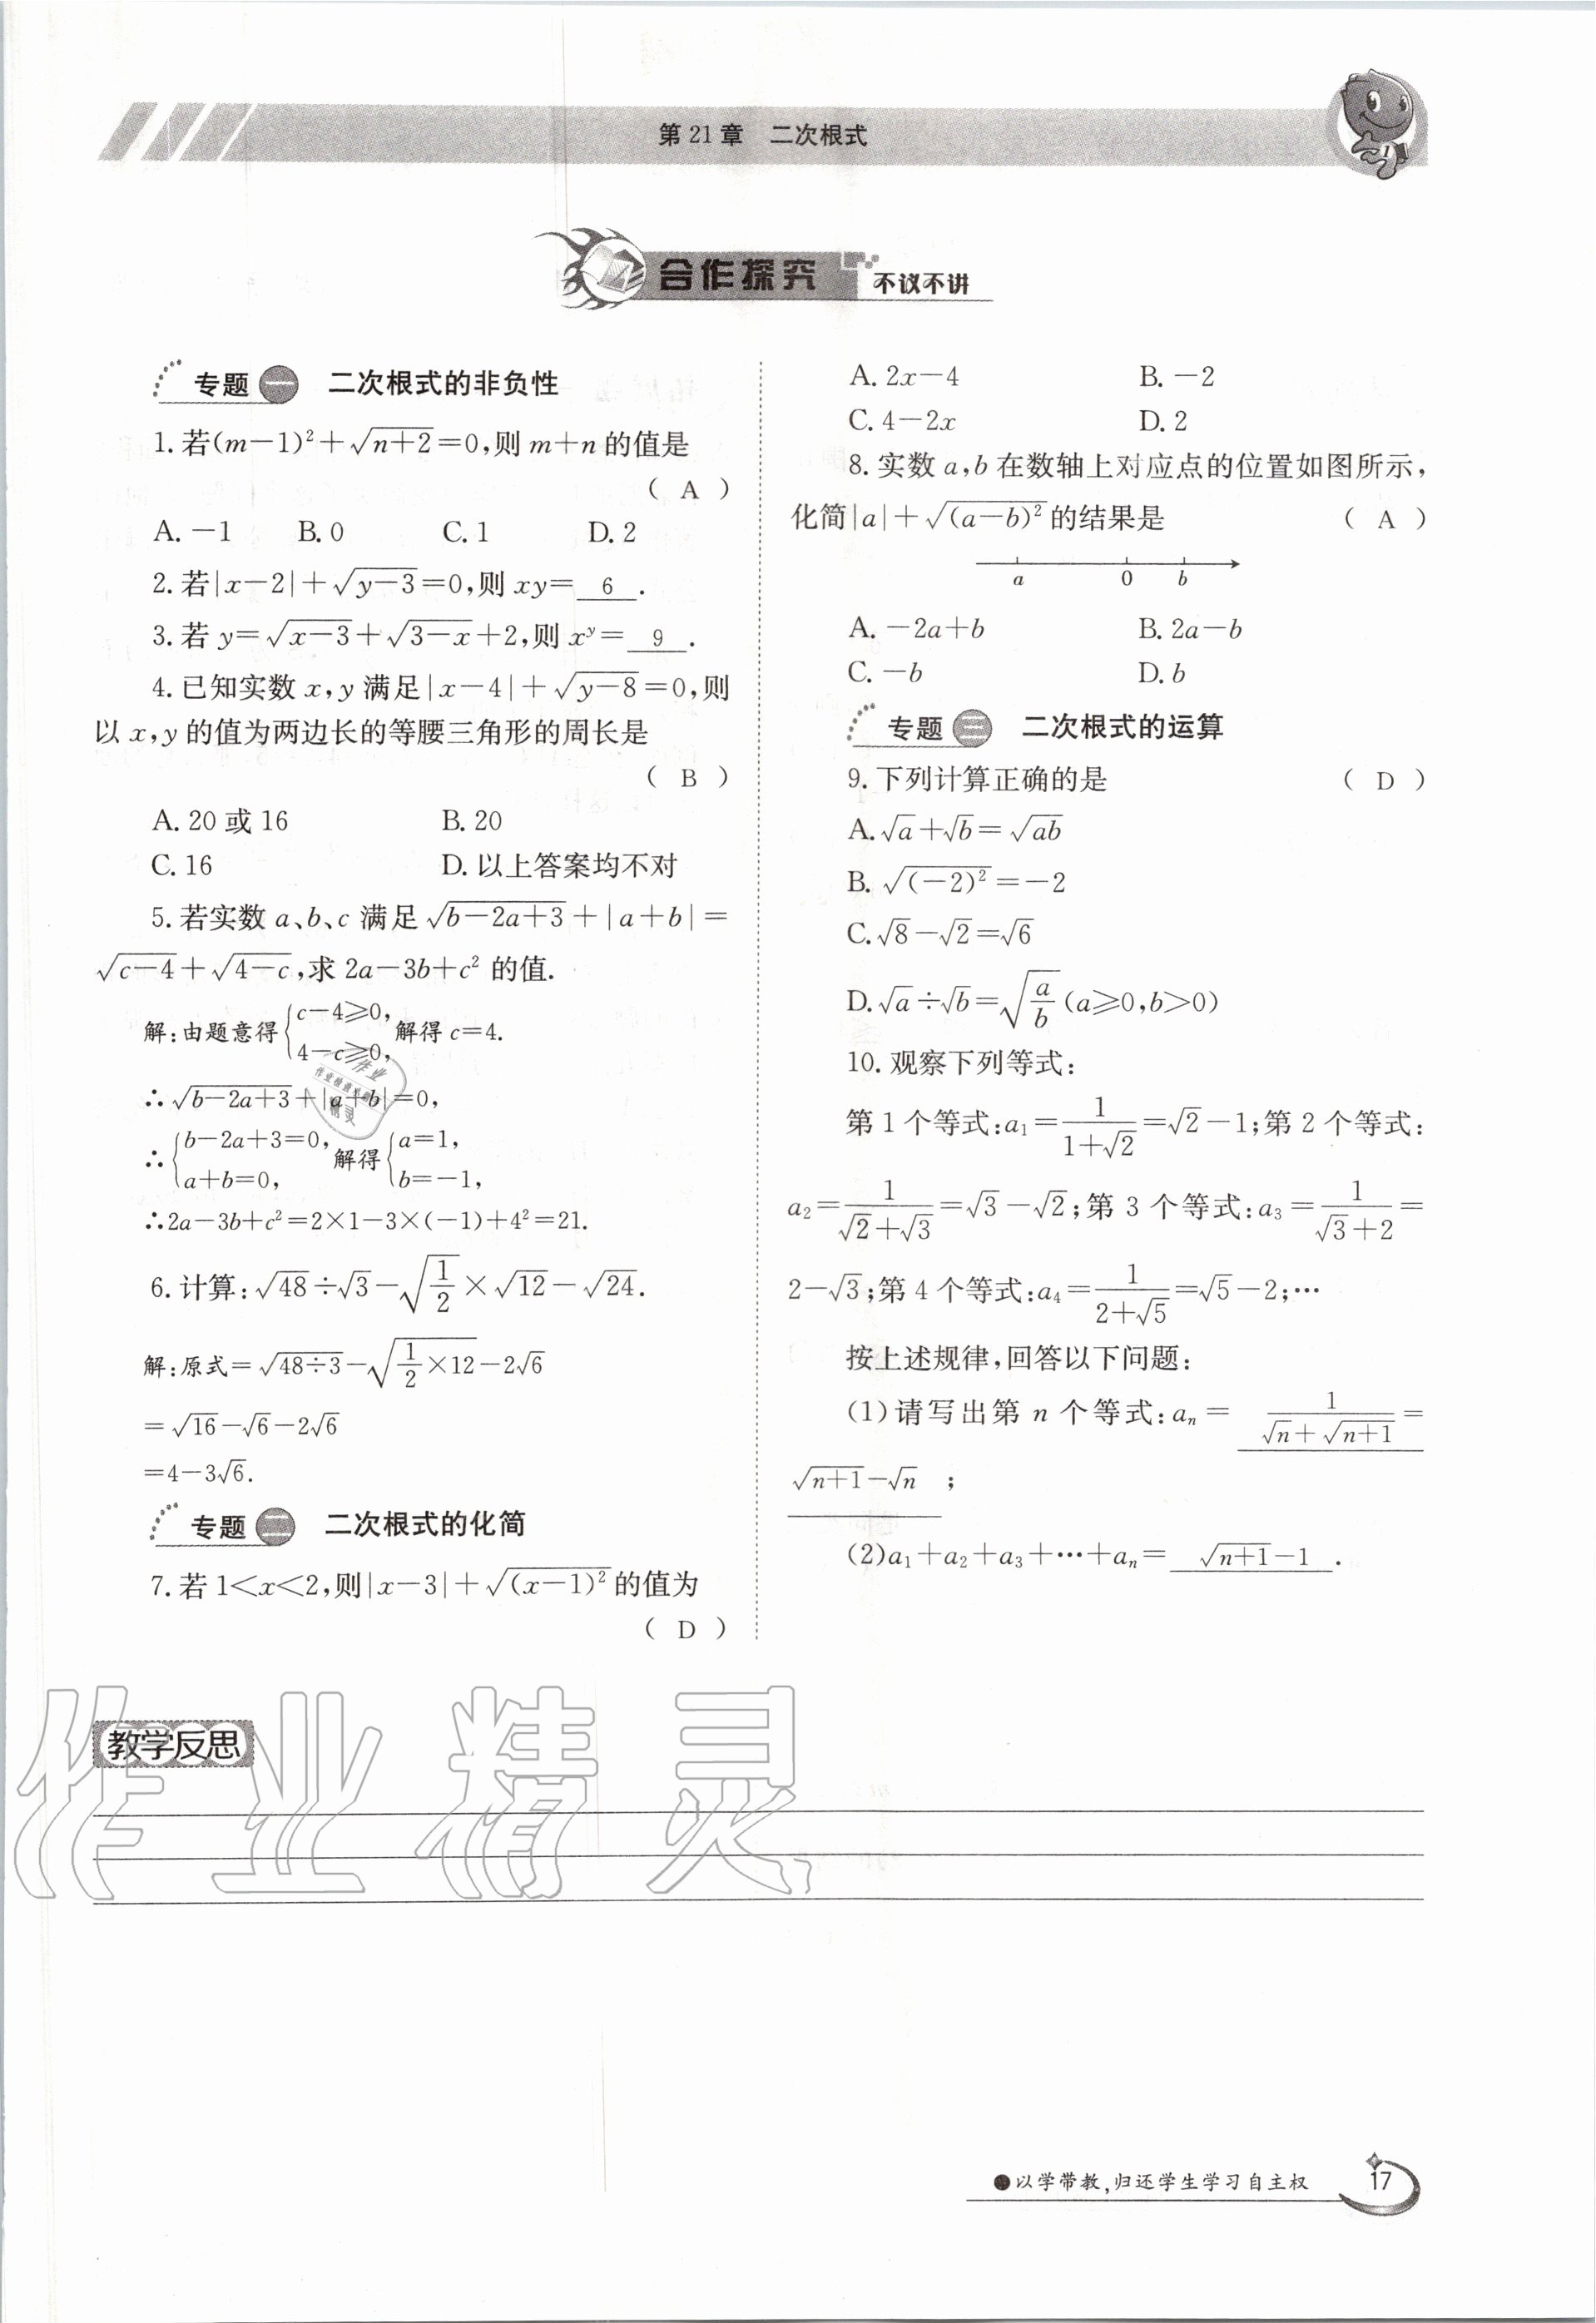 第 21 章 二次根式
合作探究 不议不讲
专题 一 二次根式的非负性
1. 若(m－1)²＋√(n＋2)＝0,则 m＋n 的值是
( A )
A. －1 B. 0 C. 1 D. 2
2. 若|x－2|＋√(y－3)＝0,则 xy＝ 6 .
3. 若 y＝√(x－3)＋√(3－x)＋2,则 xʸ＝ 9 .
4. 已知实数 x,y 满足|x－4|＋√(y－8)＝0,则
以 x,y 的值为两边长的等腰三角形的周长是
( B )
A. 20 或 16 B. 20
C. 16 D. 以上答案均不对
5. 若实数 a、b、c 满足√(b－2a＋3)＋|a＋b|＝
√(c－4)＋√(4－c),求 2a－3b＋c² 的值.
解:由题意得{c－4≥0, 4－c≥0, 解得 c＝4.
∴√(b－2a＋3)＋|a＋b|＝0,
∴{b－2a＋3＝0, a＋b＝0, 解得{a＝1, b＝－1,
∴2a－3b＋c²＝2×1－3×(－1)＋4²＝21.
6. 计算:√48÷√3－√(1/2)×√12－√24.
解:原式＝√(48÷3)－√(1/2×12)－2√6
＝√16－√6－2√6
＝4－3√6.
专题 二 二次根式的化简
7. 若 1＜x＜2,则|x－3|＋√((x－1)²)的值为
( D )
A. 2x－4 B. －2
C. 4－2x D. 2
8. 实数 a,b 在数轴上对应点的位置如图所示,
化简|a|＋√((a－b)²)的结果是 ( A )
a 0 b
A. －2a＋b B. 2a－b
C. －b D. b
专题 三 二次根式的运算
9. 下列计算正确的是 ( D )
A. √a＋√b＝√(ab)
B. √((－2)²)＝－2
C. √8－√2＝√6
D. √a÷√b＝√(a/b)(a≥0,b＞0)
10. 观察下列等式:
第 1 个等式:a₁＝1/(1＋√2)＝√2－1;第 2 个等式:
a₂＝1/(√2＋√3)＝√3－√2;第 3 个等式:a₃＝1/(√3＋2)＝
2－√3;第 4 个等式:a₄＝1/(2＋√5)＝√5－2;…
按上述规律,回答以下问题:
(1)请写出第 n 个等式:aₙ＝ 1/(√n＋√(n＋1))＝
√(n＋1)－√n ;
(2)a₁＋a₂＋a₃＋…＋aₙ＝ √(n＋1)－1 .
教学反思
作业精灵
●以学带教,归还学生学习自主权
17